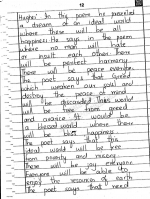 12
Hughes' In this poem he presented
a dream of an ideal world
where there will be all
happiness. He says in the poem
where no man will hate
or insult each other. There
will be perfect harmony.
There will be peace everywhere.
The poet says that Greed
which weaken our soul and
destroy the peace of mind
will be discarded. This world
will be free from greed
and avarice. It would be
a blessed world where there
will be bliss happiness.
The poet says that this
ideal world will be free
from poverty and misery.
There will be joy everywhere
Everyone will be able to
enjoy resources of earth
The poet says that need